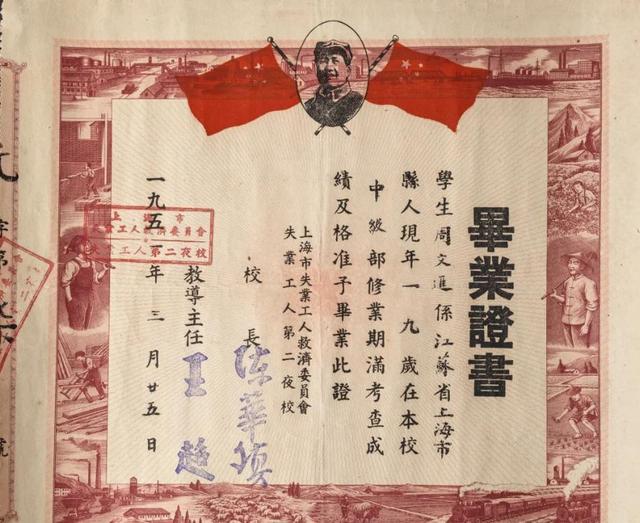 畢業證書
學生周文進係江蘇省上海市
縣人現年一九歲在本校
中級部修業期滿考查成
績及格准予畢業此證
上海市失業工人救濟委員會
失業工人第二夜校
校長
陳華
教導主任
王
一九五一年三月廿五日
上海市
失業工人救濟委員會
工人第二夜校
字第
號